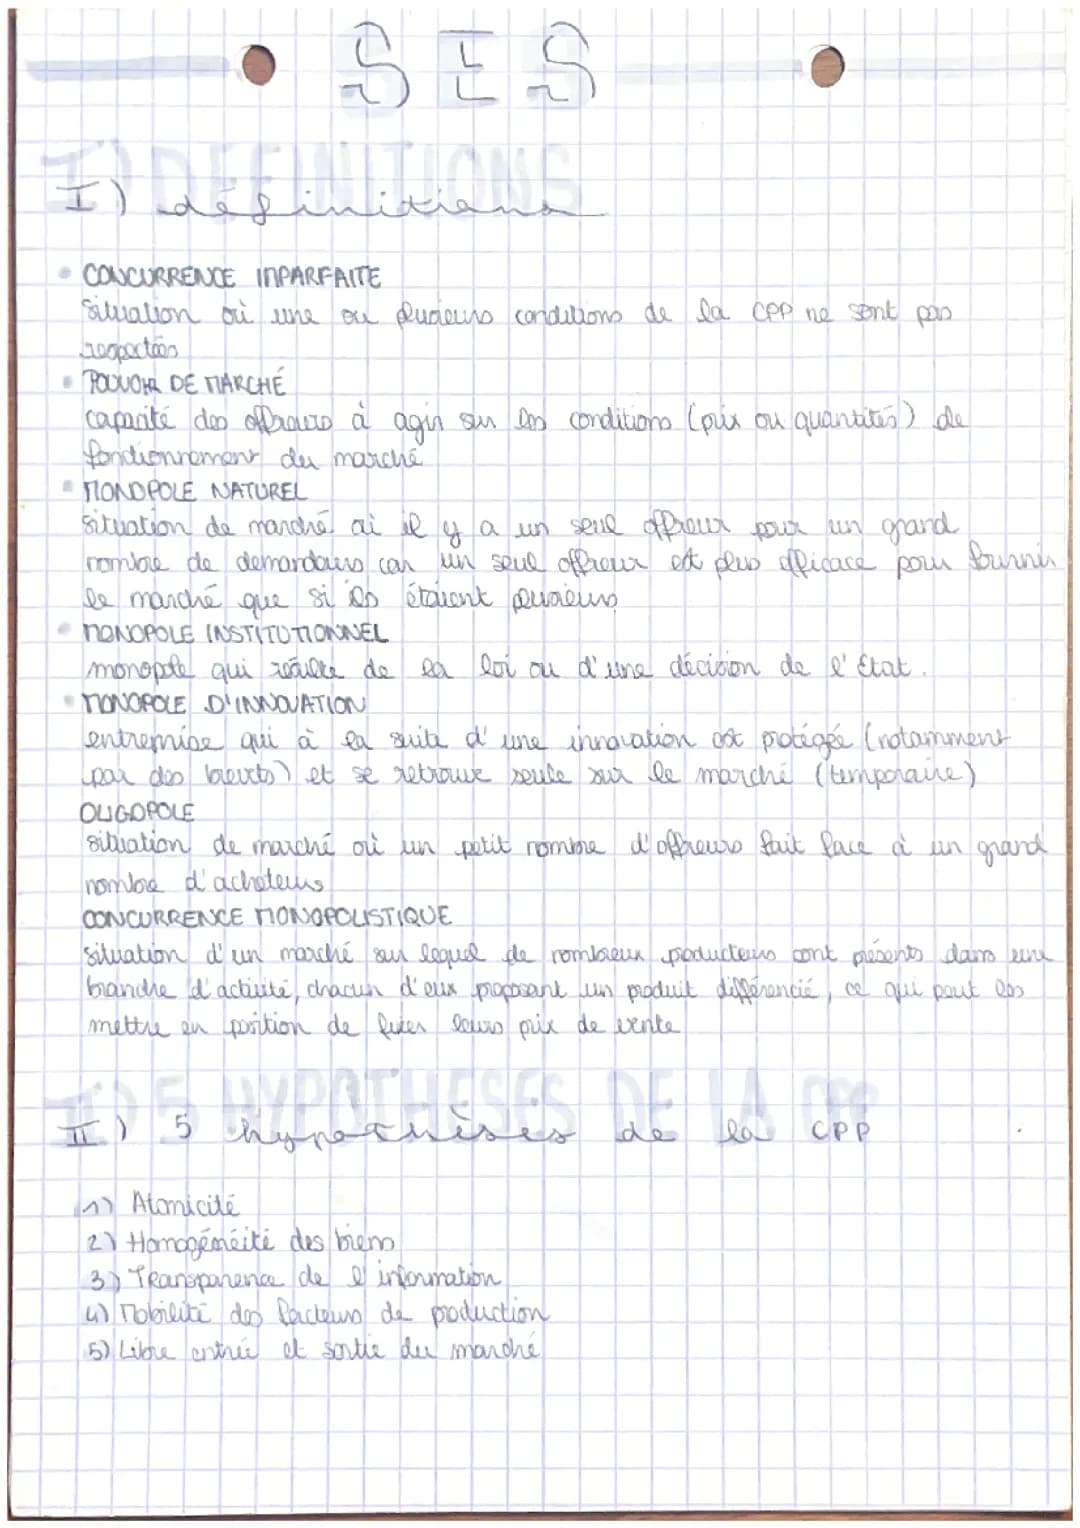 SES
I) DEFINITIONS
I) définitions
• CONCURRENCE IMPARFAITE
situation où une ou plusieurs conditions de la CPP ne sont pas
respectées
• POUVOIR DE MARCHÉ
capacité des offreurs à agir sur les conditions (prix ou quantités) de
fonctionnement du marché
• MONOPOLE NATUREL
situation de marché où il y a un seul offreur pour un grand
nombre de demandeurs car un seul offreur est plus efficace pour fournir
le marché que si ils étaient plusieurs
• MONOPOLE INSTITUTIONNEL
monopole qui résulte de la loi ou d'une décision de l'Etat.
• MONOPOLE D'INNOVATION
entreprise qui à la suite d'une innovation est protégée (notamment
par des brevets) et se retrouve seule sur le marché (temporaire)
OLIGOPOLE
situation de marché où un petit nombre d'offreurs fait face à un grand
nombre d'acheteurs
CONCURRENCE MONOPOLISTIQUE
situation d'un marché sur lequel de nombreux producteurs sont présents dans une
branche d'activité, chacun d'eux proposant un produit différencié, ce qui peut les
mettre en position de fixer leurs prix de vente
II) 5 HYPOTHESES DE LA CPP
II) 5 hypothèses de la CPP
1) Atomicité
2) Homogénéité des biens
3) Transparence de l'information
4) Mobilité des facteurs de production
5) Libre entrée et sortie du marché